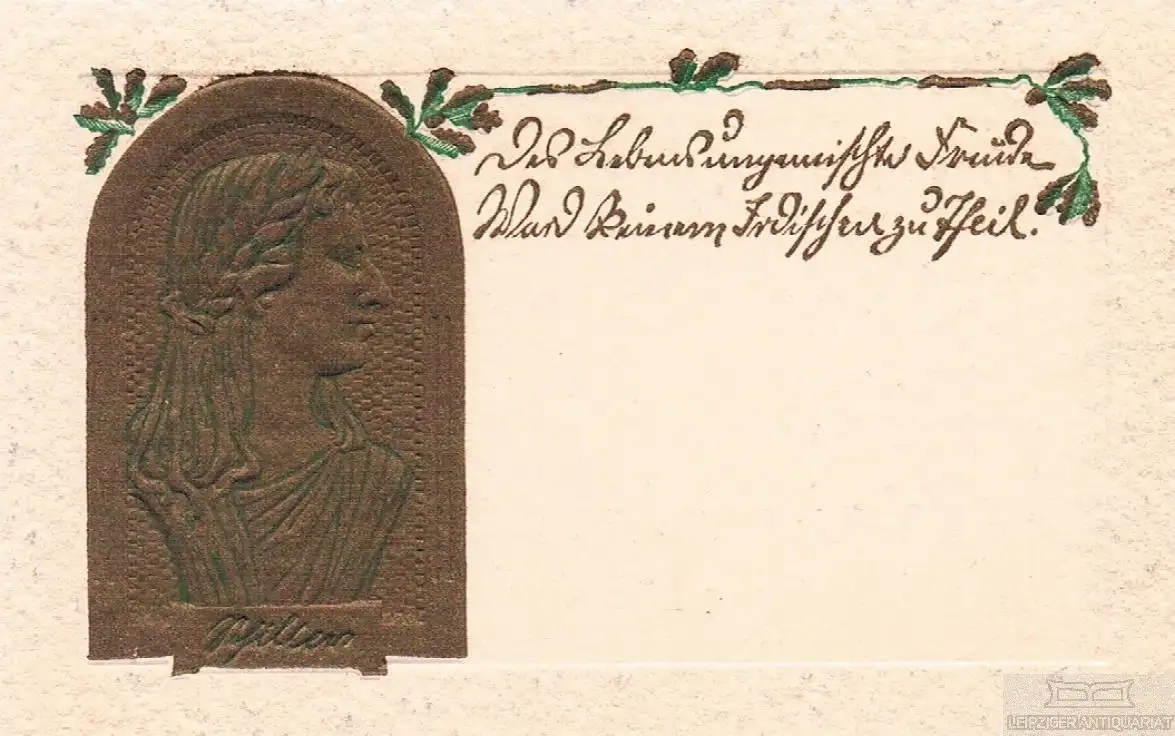 Des Lebens ungemischte Freude
Ward Keinem Irdischen zu Theil.
Schiller
LEIPZIGER ANTIQUARIAT